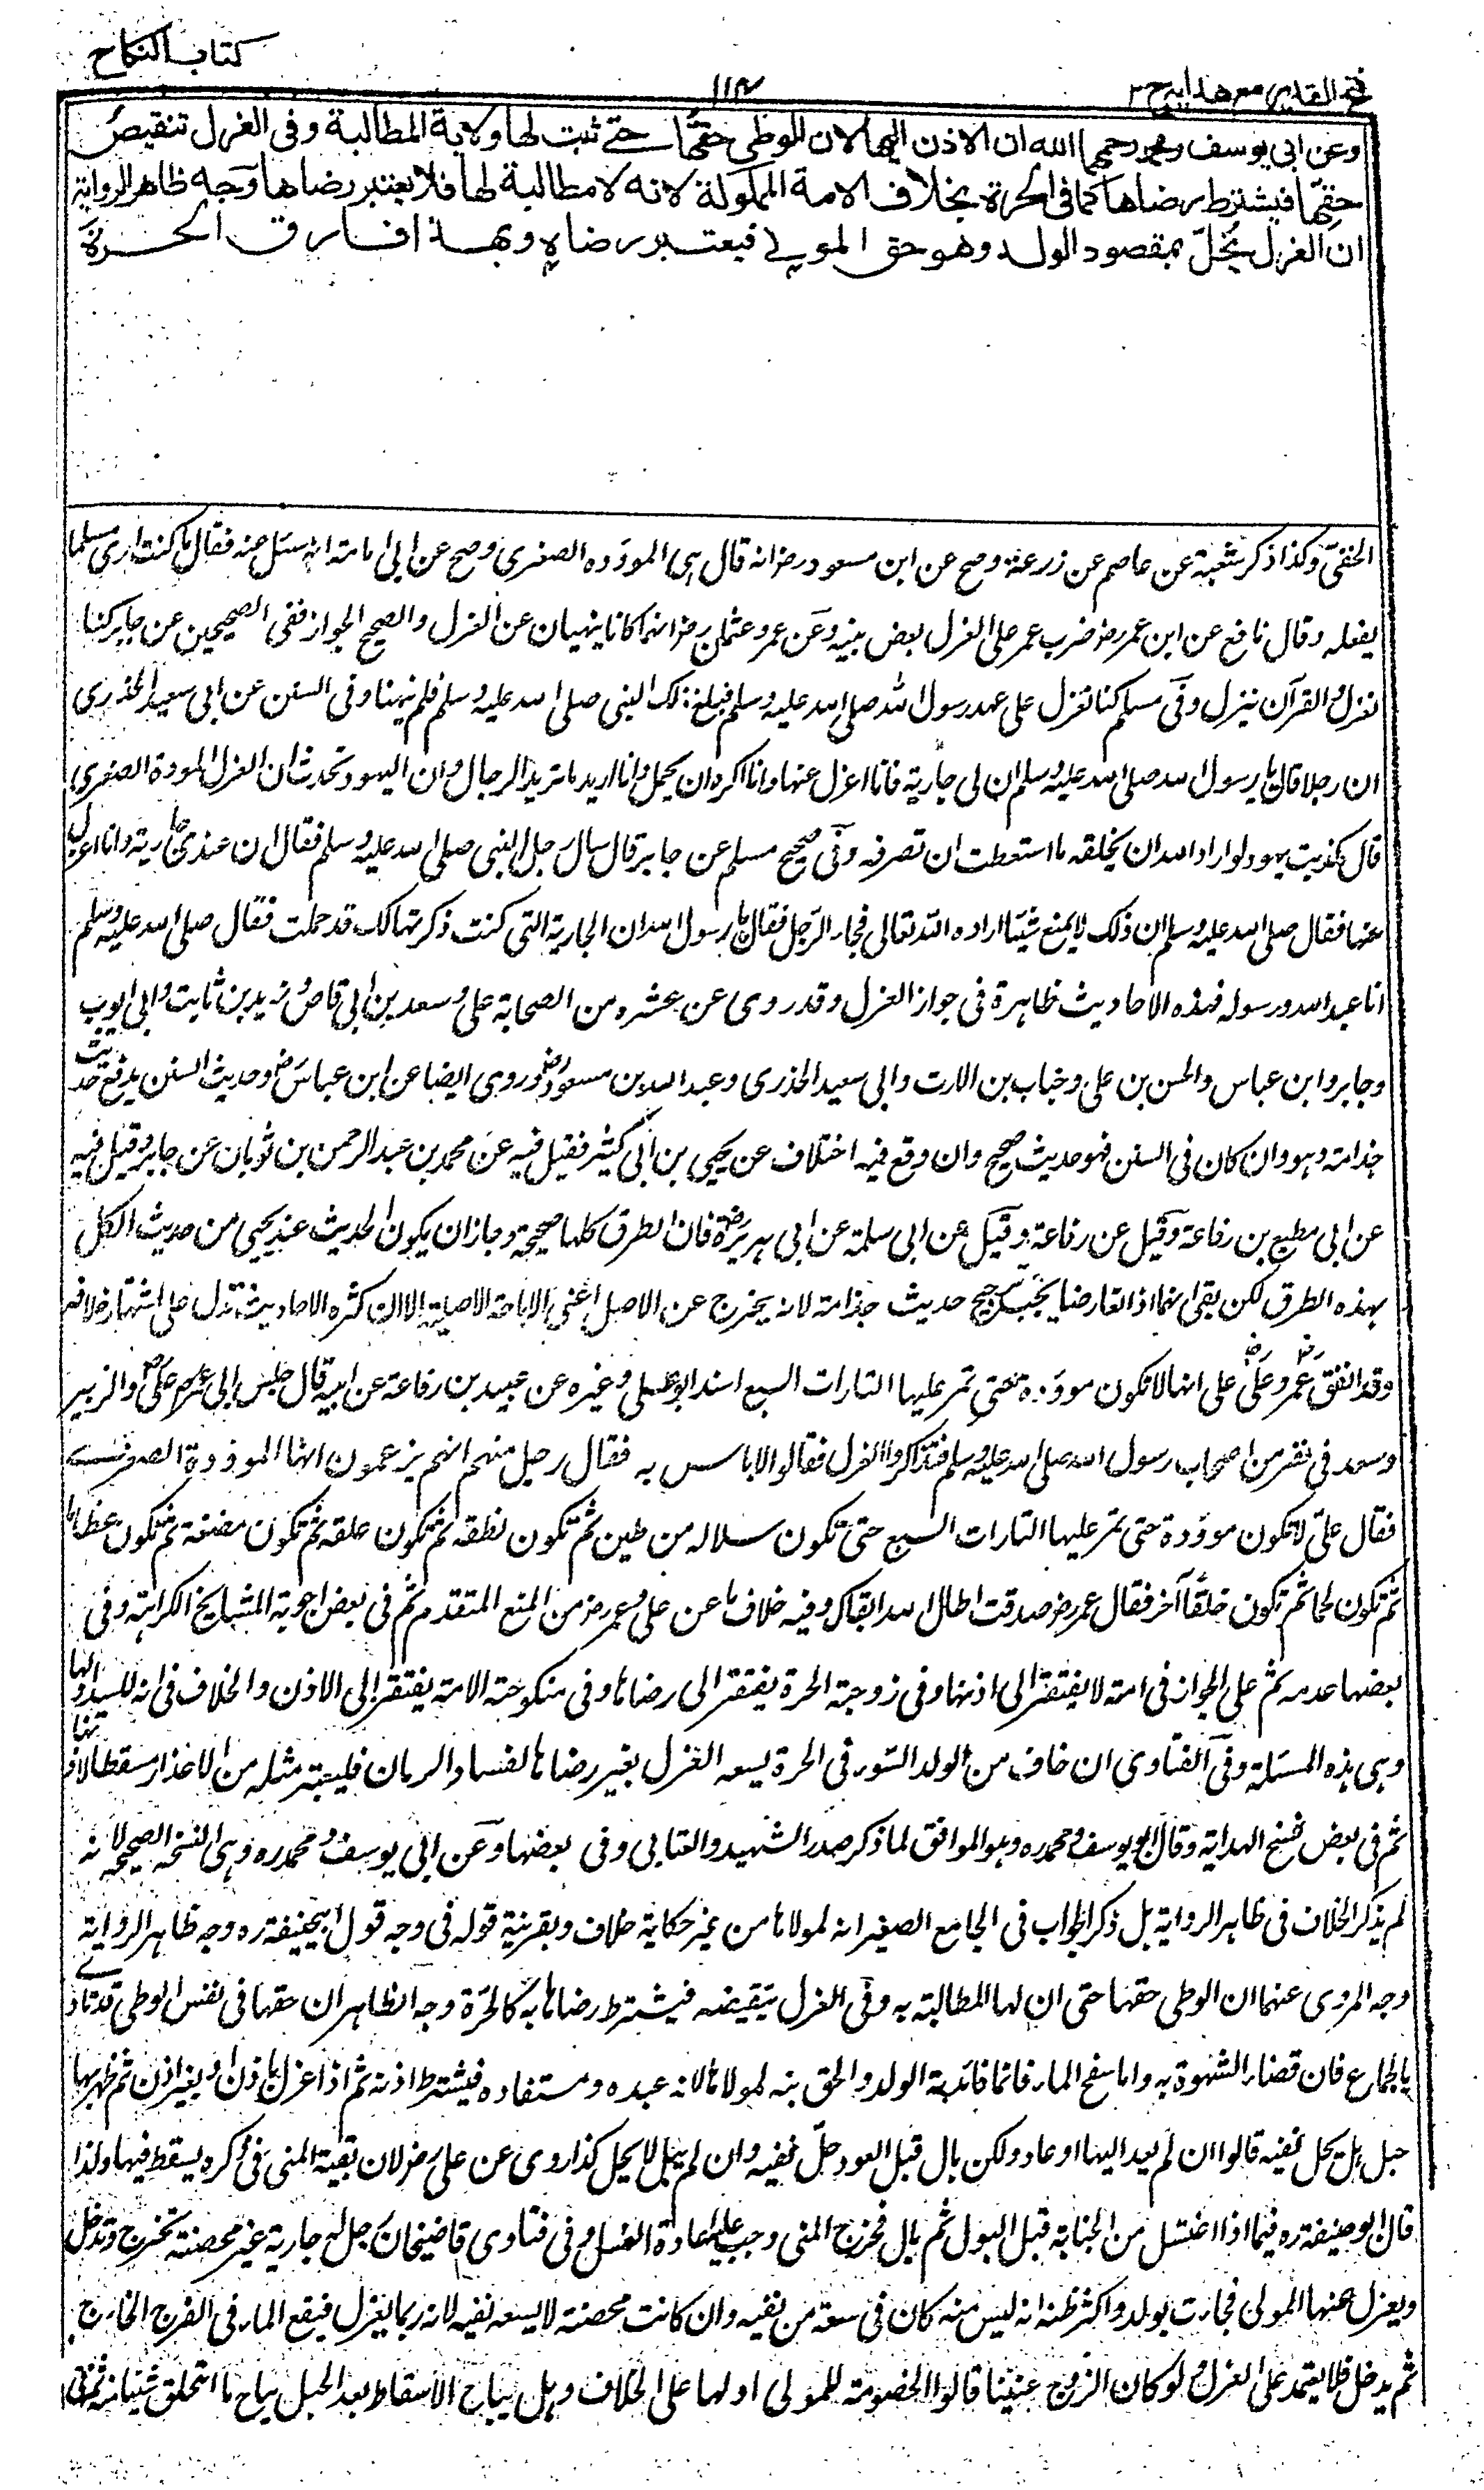 كتاب النكاح
فتح القدير مع هدايه ج ٣
١١٤
وعن ابي يوسف ومحمد رحمهما الله ان الاذن اليها لان الوطى حقها حتى ثبت لها ولاية المطالبة وفى العزل تنقيص
حقها فيشترط رضاها كما فى الحرة بخلاف الامة المملوكة لانه لا مطالبة لها فلا يعتبر رضاها وجه ظاهر الرواية
ان العزل يخل بمقصود الولد وهو حق المولى فيعتبر رضاه وبهذا فارق الحرة
الخفى وكذا ذكر شعبة عن عاصم عن زر عنه وصح عن ابن مسعود رض انه قال هى الموؤده الصغرى وصح عن ابى امامة انه سئل عنه فقال ما كنت ارى مسلما
يفعله وقال نافع عن ابن عمر رض ضرب عمر على العزل بعض بنيه وعن عمر وعثمان رض انهما كانا ينهيان عن العزل والصحيح الجواز ففى الصحيحين عن جابر كنا
نعزل والقرآن ينزل وفى مسلم كنا نعزل على عهد رسول الله صلى الله عليه وسلم فبلغ ذلك النبى صلى الله عليه وسلم فلم ينهنا وفى السنن عن ابى سعيد الخدرى
ان رجلا قال يا رسول الله صلى الله عليه وسلم ان لى جارية فانا اعزل عنها وانا اكره ان تحمل وانا اريد ما تريد الرجال وان اليهود تحدث ان العزل الموؤدة الصغرى
قال كذبت يهود لو اراد الله ان يخلقه ما استطعت ان تصرفه وفى صحيح مسلم عن جابر قال سال رجل النبى صلى الله عليه وسلم فقال ان عندى جارية وانا اعزل
عنها فقال صلى الله عليه وسلم ان ذلك لا يمنع شيئا اراده الله تعالى فجاء الرجل فقال يا رسول الله ان الجارية التى كنت ذكرتها لك قد حملت فقال صلى الله عليه وسلم
انا عبد الله ورسوله فهذه الاحاديث ظاهرة فى جواز العزل وقد روى عن عشره من الصحابة على وسعد بن ابى وقاص وزيد بن ثابت وابى ايوب
وجابر وابن عباس والحسن بن على وخباب بن الارت وابى سعيد الخذرى وعبد الله بن مسعود رض وروى ايضا عن ابن عباس رض وحديث السنن يدفع حديث
جذامة وهو وان كان فى السنن فهو حديث صحيح وان وقع فيه اختلاف عن يحيى بن ابى كثير فقيل فيه عن محمد بن عبد الرحمن بن ثوبان عن جابر وقيل فيه
عن ابى مطيع بن رفاعة وقيل عن رفاعة وقيل عن ابى سلمة عن ابى هريرة رض فان الطرق كلها صحيحة وجاز ان يكون الحديث عند يحيى من حديث الكل
بهذه الطرق لكن بقى انهما اذا تعارضا يجب ترجيح حديث جذامة لانه يخرج عن الاصل اعنى الاباحة الاصلية الا ان كثره الاحاديث تدل على اشتهار خلافه
وقد اتفق عمر رض وعلى رض على انها لا تكون موؤدة حتى تمر عليها التارات السبع اسند ابو يعلى وغيره عن عبيد بن رفاعة عن ابيه قال جلس الى عمر على والزبير
وسعد فى نفر من اصحاب رسول الله صلى الله عليه وسلم فتذاكروا العزل فقالوا لا باس به فقال رجل منهم انهم يزعمون انها الموؤدة الصغرى
فقال على لا تكون موؤدة حتى تمر عليها التارات السبع حتى تكون سلاله من طين ثم تكون نطفه ثم تكون علقه ثم تكون مضغة ثم تكون عظاما
ثم تكون لحما ثم تكون خلقا آخر فقال عمر رض صدقت اطال الله ابقاك وفيه خلاف ما عن على وعمر رض من المنع المتقدم ثم فى بعض اجوبة المشايخ الكراهة وفى
بعضها عدمه ثم على الجواز فى امته لا يفتقر الى اذنها وفى زوجته الحرة يفتقر الى رضاها وفى منكوحته الامة يفتقر الى الاذن والخلاف فى انه للسيد او لها
وهى هذه المسئلة وفى الفتاوى ان خاف من الولد السوء فى الحرة يسعه العزل بغير رضاها لفساد الزمان فليعتبر مثله من الاعذار مسقطا لاذنها
ثم فى بعض نسخ الهداية وقال ابو يوسف ومحمد ره وهو الموافق لما ذكر صدر الشهيد والعتابى وفى بعضها وعن ابى يوسف ومحمد ره وهى النسخ الصحيحه لانه
لم يذكر الخلاف فى ظاهر الرواية بل ذكر الجواب فى الجامع الصغير انه لمولاها من غير حكاية خلاف وبقرينة قوله فى وجه قول ابيحنيفة ره وجه ظاهر الرواية
وجه المروى عنهما ان الوطى حقها حتى ان لها المطالبة به وفى العزل تنقيصه فيشترط رضاها به كالحرة وجه الظاهر ان حقها فى نفس الوطى قد تادى
بالجماع فان قضاء الشهوة به واما سفح الماء فانما فائدته الولد والحق فيه لمولاها لانه عبده ومستفاده فيشترط اذنه ثم اذا عزل باذن او بغير اذن ثم ظهر بها
حبل هل يحل نفيه قالوا ان لم يعد اليها او عاد ولكن بال قبل العود حل نفيه وان لم يبل لا يحل كذا روى عن على رض لان بقية المنى فى ذكره يسقط فيها ولذا
قال ابو حنيفة ره فيما اذا اغتسل من الجنابة قبل البول ثم بال فخرج المنى وجب عليه اعادة الغسل وفى فتاوى قاضيخان رجل له جارية غير محصنة تخرج وتدخل
ويعزل عنها المولى فجاءت بولد واكثر ظنه انه ليس منه كان فى سعة من نفيه وان كانت محصنة لا يسعه نفيه لانه ربما يعزل فيقع الماء فى الفرج الخارج
ثم يدخل فلا يعتمد على العزل لو كان الزوج عنينا قالوا الخصومة للمولى او لها على الخلاف وهل يباح الاسقاط بعد الحبل يباح ما لم يتخلق شئ منه ثم فى